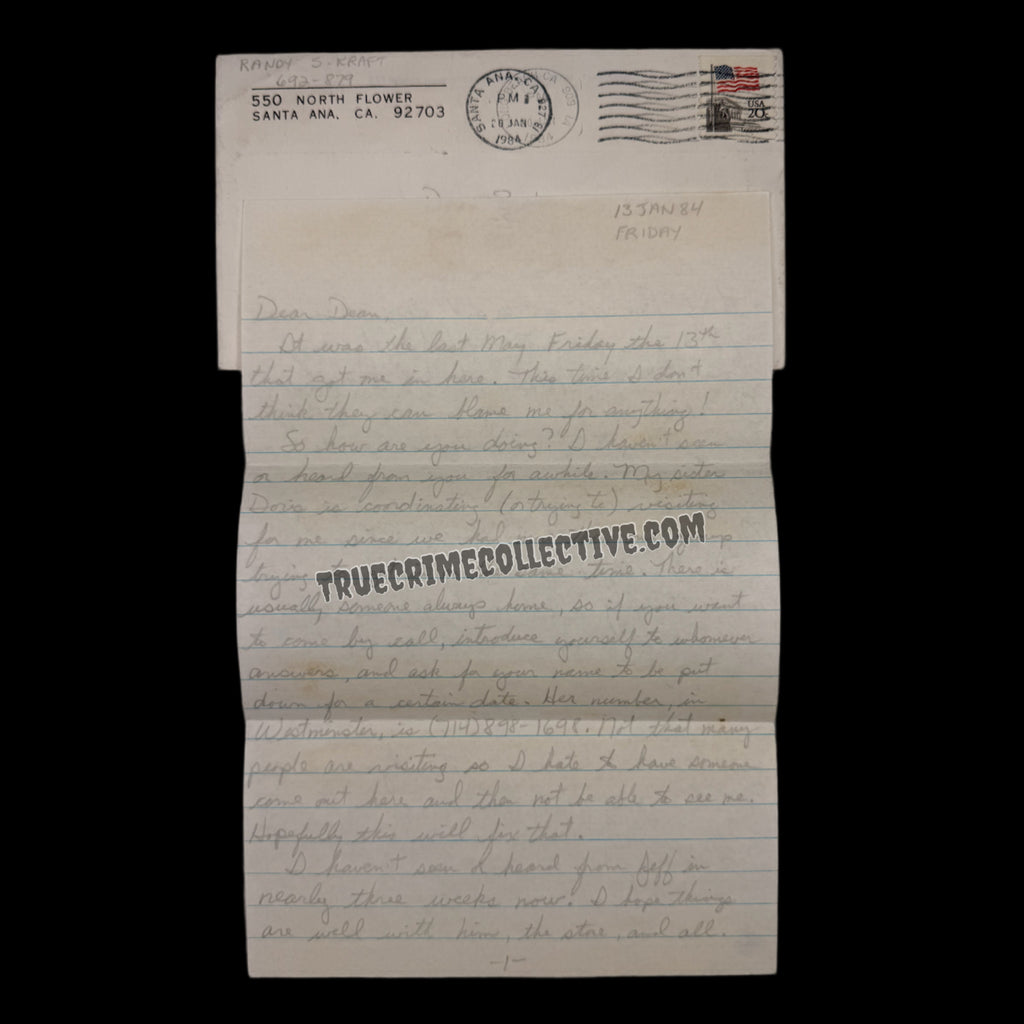 RANDY S. KRAFT
692-879
550 NORTH FLOWER
SANTA ANA, CA. 92703
SANTA ANA, CA
PM
JAN
1984
USA
20c
13 JAN 84
FRIDAY
Dear Dean,
It was the last May Friday the 13th
that got me in here. This time I don't
think they can blame me for anything!
So how are you doing? I haven't seen
or heard from you for awhile. My sister
Doris is coordinating (or trying to) visiting
for me since we had
trying same time. There is
TRUECRIMECOLLECTIVE.COM
usually someone always home, so if you want
to come by call, introduce yourself to whomever
answers, and ask for your name to be put
down for a certain date. Her number, in
Westminster, is (714)898-1698. Not that many
people are visiting so I hate to have someone
come out here and then not be able to see me.
Hopefully this will fix that.
I haven't seen or heard from Jeff in
nearly three weeks now. I hope things
are well with him, the store, and all.
-1-